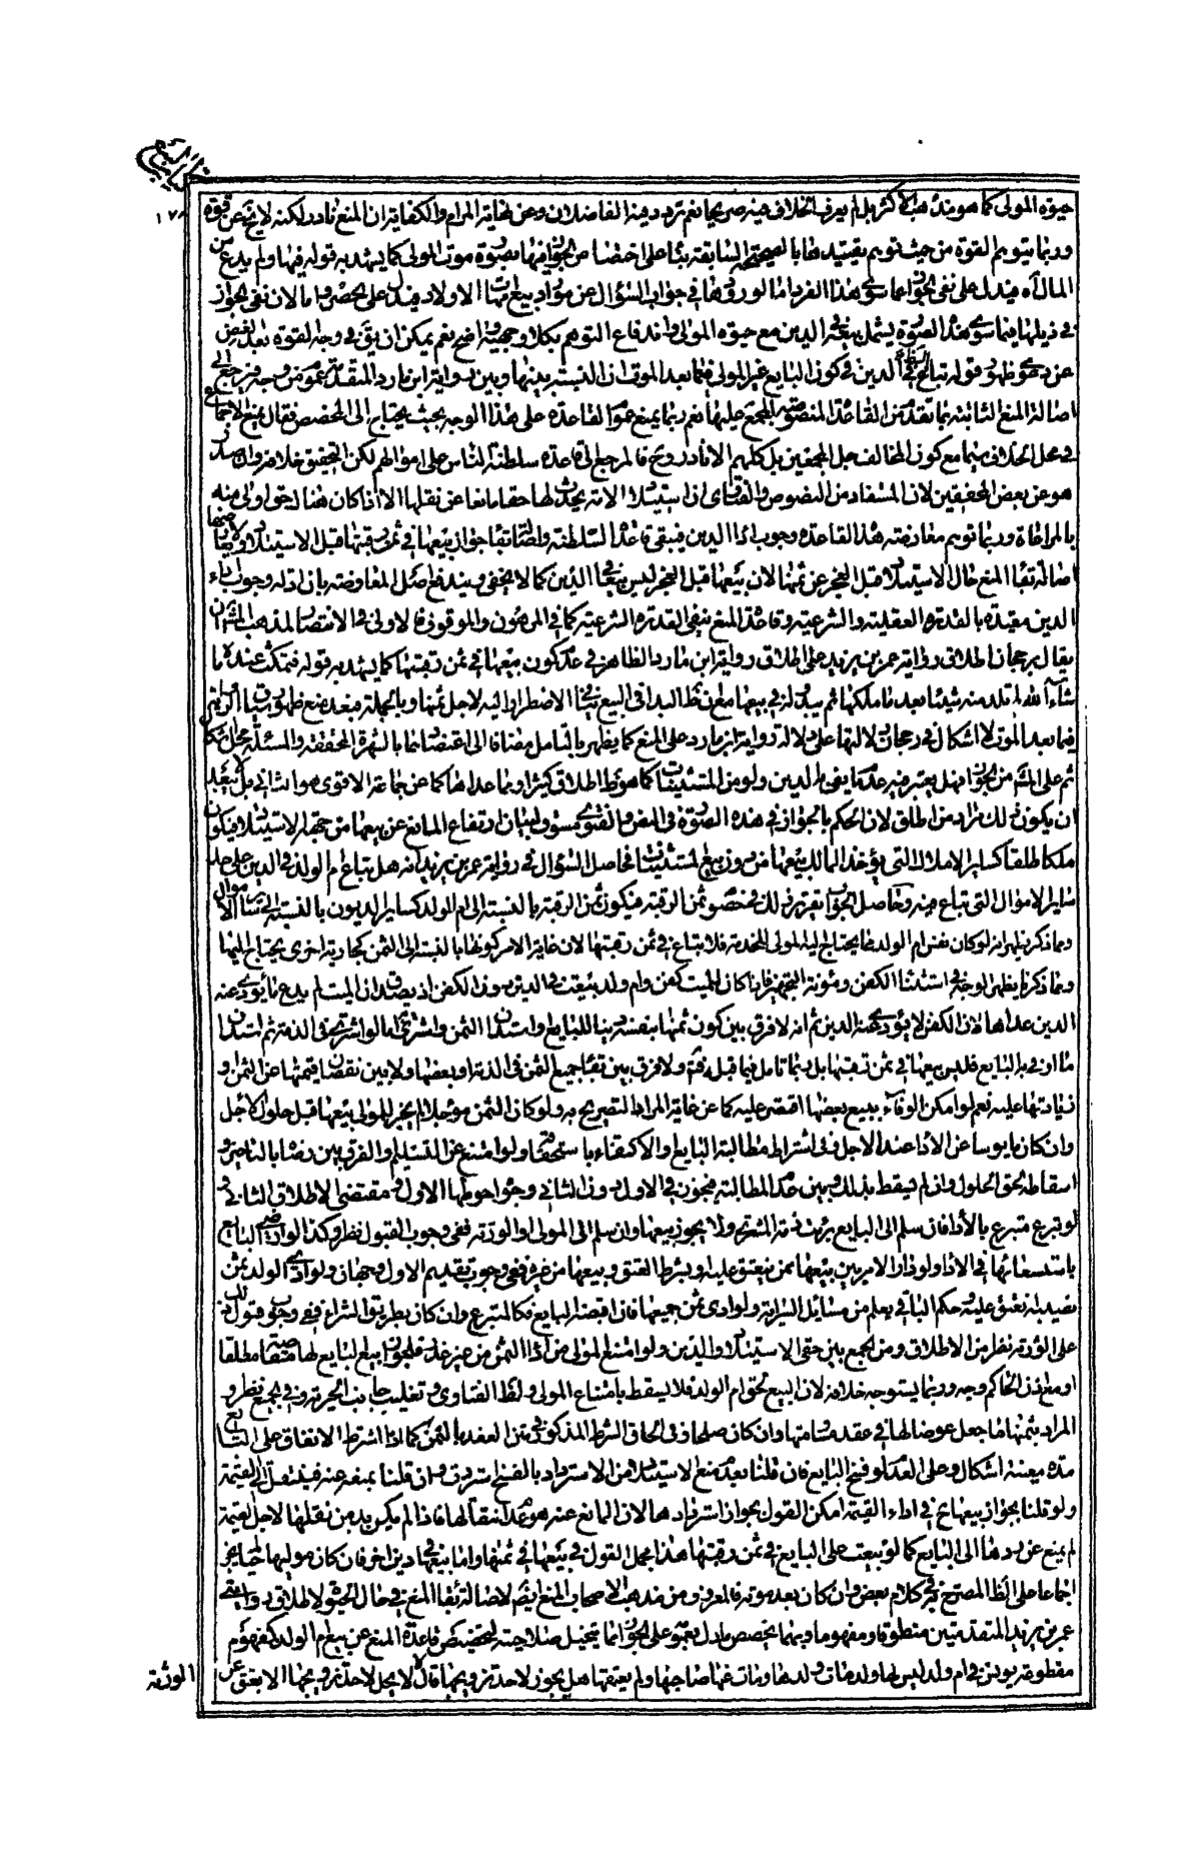 كتاب البيع
١٧٨
حيوة المولى كما هو مذهب الأكثر بل لم يعرف الخلاف فيه صريحا نعم تردد فيه الفاضلان وعن نهاية المرام والكفاية ان المنع نادر لكنه لا يخ عن قوة
وربما يتوهم القوة من حيث توهم تقييدها بالصحيحة السابقة بناء على اختصاص الجواز فيها بصورة موت المولى كما يشهد به قوله فيها ولم يدع من
المال اه فيدل على نفى الجواز عما سوى هذا الفرد اما لورودها في جواب السؤال عن موارد بيع امهات الاولاد فيدل على الحصر واما لان نفى الجواز
في ذيلها فيما سوى هذه الصورة يشمل بيعها في الدين مع حيوة المولى واندفاع التوهم بكلا وجهيه واضح نعم يمكن ان يق في وجه القوة بعد الغض
عن دعوى ظهور قوله تباع في الدين في كون البايع غير المولى فيما بعد الموت ان النسبة بينها وبين رواية ابن مارد المتقدمة عموم من وجه فيرجع الى
اصالة المنع الثابتة بما تقدم من القاعدة المنصوصة المجمع عليها نعم ربما يمنع عموم القاعدة على هذا الوجه بحيث يحتاج الى المخصص فيقال بمنع الاجماع
في محل الخلاف سيما مع كون المخالف جل المجمعين بل كلهم الا نادرا وح فالمرجع الى قاعدة سلطنة الناس على اموالهم لكن التحقيق خلافه وان صدر
هو عن بعض المحققين لان المستفاد من النصوص والفتاوى ان استيلاد الامة يحدث لها حقا مانعا عن نقلها الا اذا كان هناك حق اولى منه
بالمراعاة وربما توهم معارضة هذه القاعدة وجوب اداء الدين فيبقى قاعدة السلطنة واصالة بقاء جواز بيعها في ثمن رقبتها قبل الاستيلاد ولا يعارضها
اصالة بقاء المنع حال الاستيلاد قبل العجز عن ثمنها لان بيعها قبل العجز ليس بيعا في الدين كما لا يخفى ويندفع اصل المعارضة بان ادلة وجوب اداء
الدين مقيدة بالقدرة العقلية والشرعية وقاعدة المنع تنفى القدرة الشرعية كما في المرهون والموقوف فالاولى في الانتصار لمذهب المشهور ان
يقال برجحان اطلاق رواية عمر بن يزيد على اطلاق رواية ابن مارد الظاهر في عدم كون بيعها في ثمن رقبتها كما يشهد به قوله فتمكث عنده ما
شاء الله لم تلد منه شيئا بعد ما ملكها ثم يبدو له في بيعها مع ان ظ البداء في البيع ينافي الاضطرار اليه لاجل ثمنها وبالجملة فبعد منع ظهور سياق الرواية
فيما بعد الموت لا اشكال في رجحان دلالتها على دلالة رواية ابن مارد على المنع كما يظهر بالتامل مضافا الى اعتضادها بالشهرة المحققة والمسئلة محل اشكال
ثم على المش من الجواز فهل يعتبر فيه عدم ما يفي بالدين ولو من المستثنيات كما هو ظ اطلاق كثير او مما عداها كما عن جماعة الاقوى هو الثاني بل لا يبعد
ان يكون ذلك مراد من اطلق لان الحكم بالجواز في هذه الصورة في النص والفتوى مسوق لبيان ارتفاع المانع عن بيعها من جهة الاستيلاد فيكون
ملكا طلقا كسائر الاملاك التي يؤخذ المالك ببيعها من دون بيع المستثنيات فحاصل السؤال في رواية عمر بن يزيد انه هل تباع ام الولد في الدين على حد
ساير الاموال التي تباع فيه وحاصل الجواب تقرير ذلك في خصوص ثمن الرقبة فيكون ثمن الرقبة بالنسبة الى ام الولد كساير الديون بالنسبة الى ساير الاموال
ومما ذكرنا يظهر انه لو كان نفس ام الولد مما يحتاج اليه المولى للخدمة فلا تباع في ثمن رقبتها لان غاية الامر كونها بالنسبة الى الثمن كجارية اخرى يحتاج اليها
ومما ذكرنا يظهر الوجه في استثناء الكفن ومؤنة التجهيز فاذا كان للميت كفن وام ولد بيعت في الدين دون الكفن اذ يصدق ان الميت لم يدع ما يؤدى عنه
الدين عداها لان الكفن لا يؤدى عنه الدين ثم انه لا فرق بين كون ثمنها بنفسه دينا للبايع او استدان الثمن واشترى به اما لو اشترى في الذمة ثم استدان
ما اوفى به البايع فليس بيعها في ثمن رقبتها بل ربما تامل فيما قبله فتم ولا فرق بين بقاء جميع الثمن في الذمة او بعضه ولا بين نقصان قيمتها عن الثمن و
زيادتها عليه نعم لو امكن الوفاء ببيع بعضها اقتصر عليه كما عن غاية المراد التصريح به ولو كان الثمن مؤجلا لم يجز للمولى بيعها قبل حلول الاجل
وان كان مايوسا عن الاداء عند الاجل وفي اشتراط مطالبة البايع والاكتفاء باستحقاقه ولو امتنع عن التسليم والفرق بين رضاه بالتاخير و
اسقاطه لحق الحلول وان لم يسقط بذلك وبين عدم المطالبة فيجوز في الاول دون الثاني وجوه احوطها الاول و مقتضى الاطلاق الثاني و
لو تبرع متبرع بالاداء فان سلم الى البايع برئت ذمة المشترى ولا يجوز بيعها وان سلم الى المولى او الورثة ففي وجوب القبول نظر وكذا لو ارضى البايع
باستسعائها في الاداء ولو دار الامر بين بيعها ممن تنعتق عليه او بشرط العتق وبيعها من غيره ففي وجوب تقديم الاول وجهان ولو ادى الولد ثمن
نصيبه انعتق عليه وحكم الباقي يعلم من مسائل السراية ولو ادى ثمن جميعها فان اقبضه البايع فكالمتبرع وان كان بطريق الشراء ففي وجوب قبول ذلك
على الورثة نظر من الاطلاق ومن الجمع بين حقى الاستيلاد والدين ولو امتنع المولى من اداء الثمن من غير عذر فلجواز بيع البايع لها مقاصة مطلقا
او مع اذن الحاكم وجه وربما يستوجه خلافه لان المنع لحق ام الولد فلا يسقط بامتناع المولى ولظ الفتاوى وتغليب جانب الحرية وفي الجميع نظر و
المراد بثمنها ما جعل عوضا لها في عقد مساومتها وان كان صلحا وفي الحاق الشرط المذكور في متن العقد بالثمن كما اذا اشترط الانفاق على البايع
مدة معينة اشكال وعلى العدم لو فسخ البايع فان قلنا بعدم منع الاستيلاد من الاسترداد بالفسخ استردت وان قلنا بمنعه عنه فينتقل الى القيمة
ولو قلنا بجواز بيعها ح في اداء القيمة امكن القول بجواز استردادها لان المانع عنه هو عدم انتقالها فاذا لم يكن بد من نقلها لاجل القيمة
لم يمنع عن ردها الى البايع كما لو بيعت على البايع في ثمن رقبتها هذا مجمل القول في بيعها في ثمنها واما بيعها في دين اخر فان كان موليها حيا لم يجز
اجماعا على الظ المصرح به في كلام بعض وان كان بعد موته فالمعروف من مذهب الاصحاب المنع ايضا لاصالة بقاء المنع في حال الحيوة ولاطلاق روايتى
عمر بن يزيد المتقدمتين منطوقا ومفهوما وبهما يخصص ما دل بعمومه على الجواز مما يتخيل صلاحيته لتخصيص قاعدة المنع عن بيع ام الولد كمفهوم
مقطوعة يونس في ام ولد ليس لها ولد مات ولدها ومات عنها صاحبها ولم يعتقها هل يجوز لاحد تزويجها قال لا يحل لاحد تزويجها الا بعتق من
الورثة